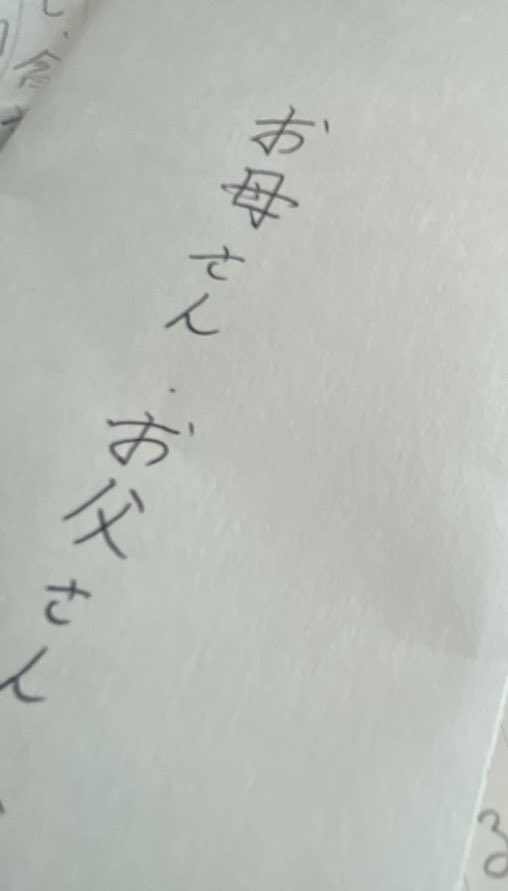 お母さん・お父さん